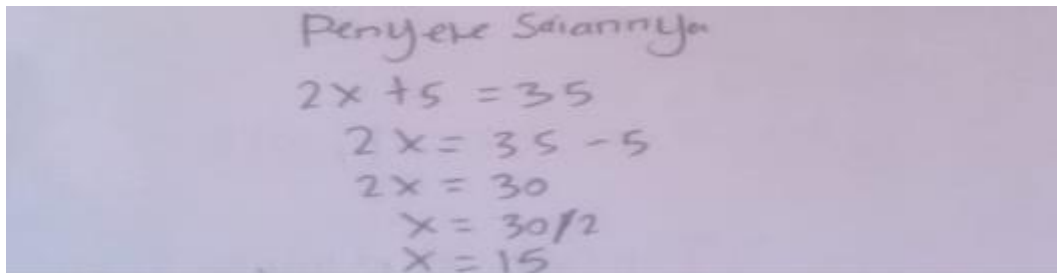 Penyele Saiannya
2x + 5 = 35
2x = 35 - 5
2x = 30
x = 30/2
x = 15